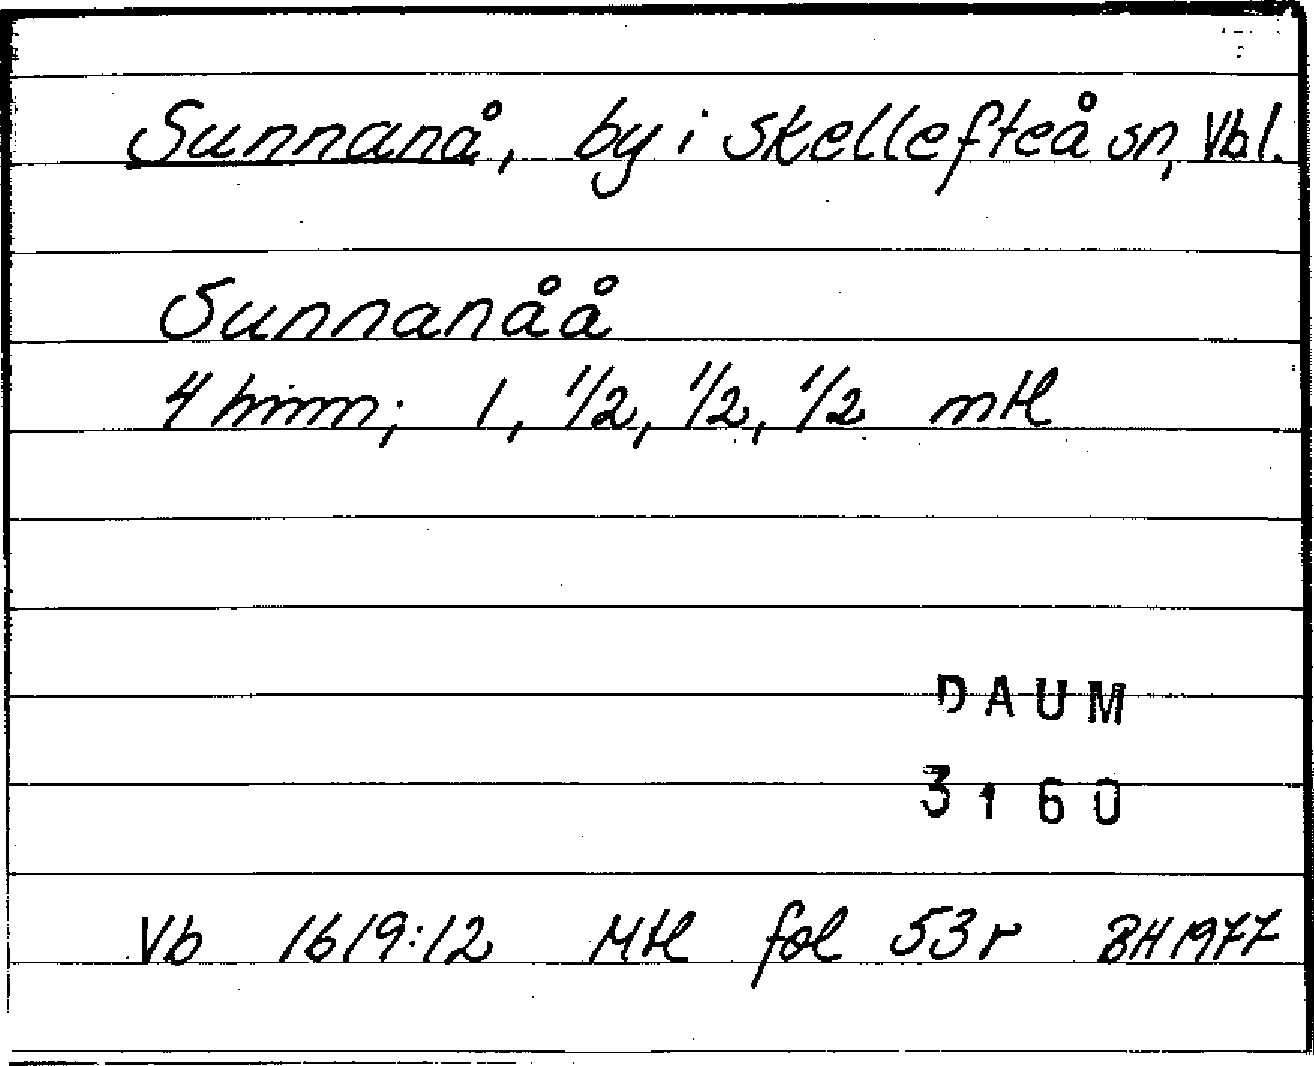 Sunnanå, by i Skellefteå sn, Vbl.
Sunnanåå
4 hmm; 1, 1/2, 1/2, 1/2 mtl
DAUM
3160
Vb 1619:12 Mtl fol 53r BH 1977